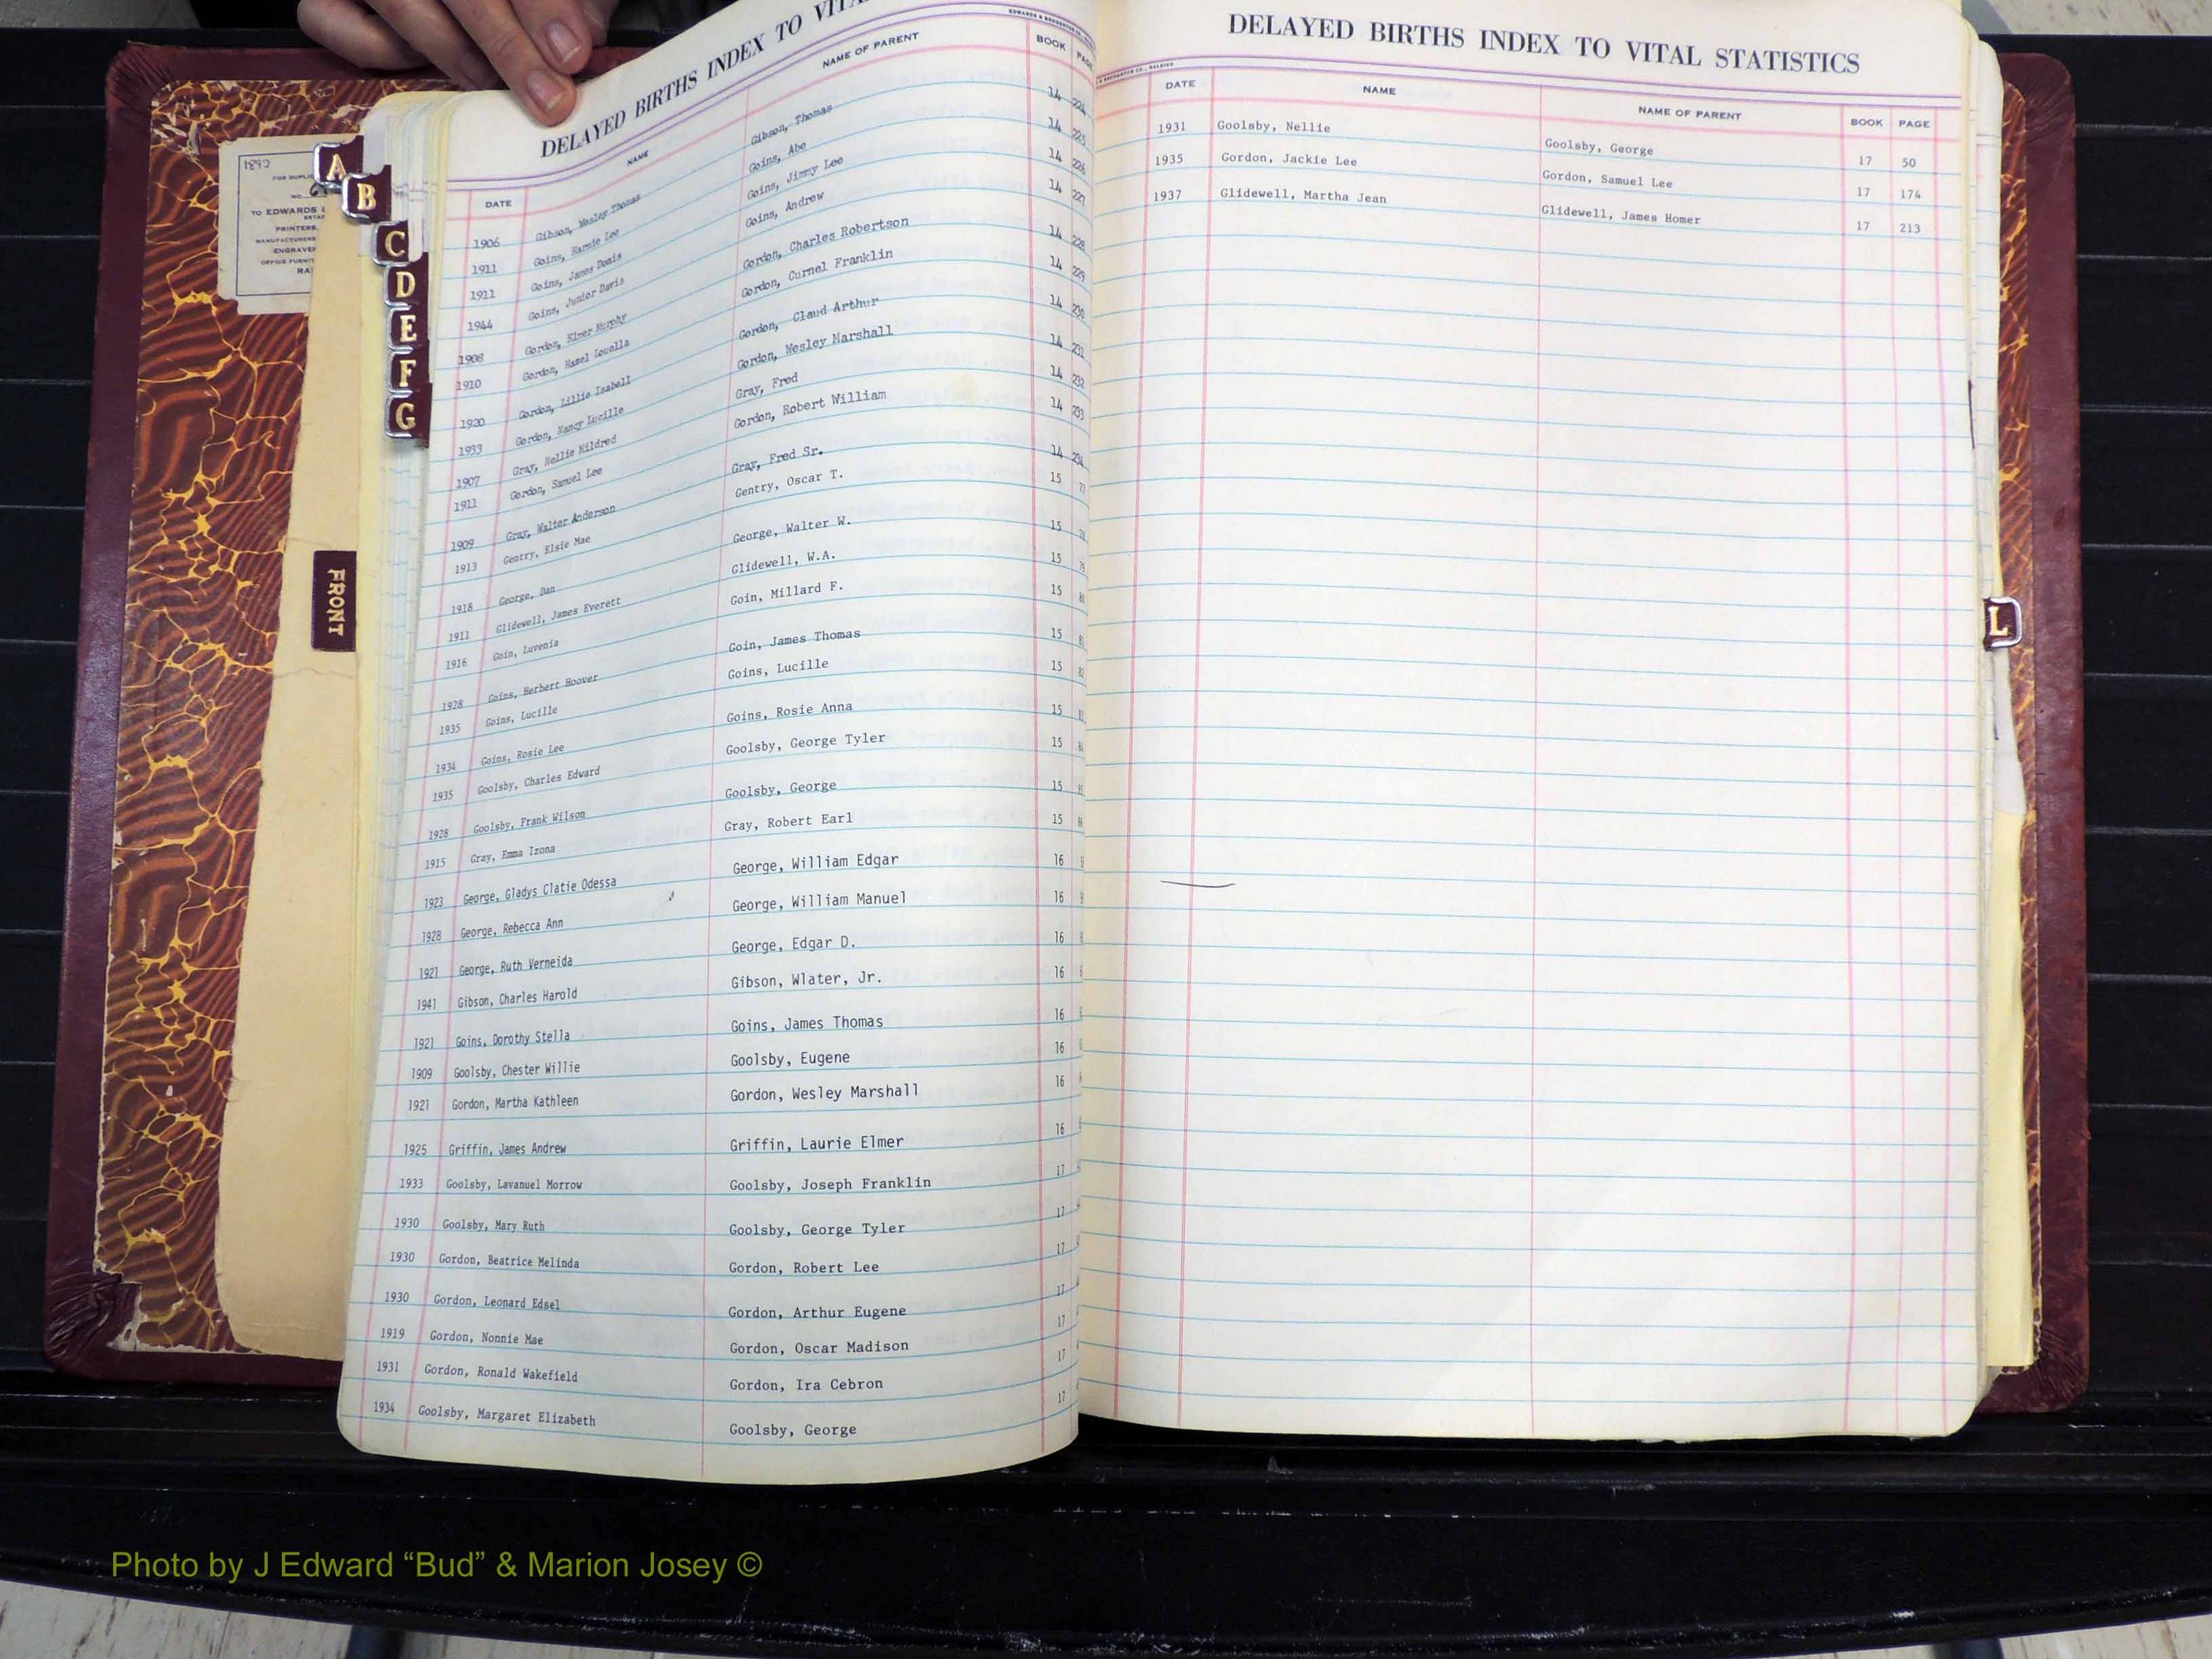 DELAYED BIRTHS INDEX TO
DATE NAME NAME OF PARENT BOOK
1906 Gibson, Wesley Thomas Gibson, Thomas 14 224
1911 Goins, Lee Goins, Abe 14 225
1911 Goins, James Goins, Jimmy Lee 14 226
1944 Goins, Junior Davis Goins, Andrew 14 227
1908 Gordon, Elmer Murphy Gordon, Charles Robertson 14 228
1910 Gordon, Hazel Louella Gordon, Curnel Franklin 14 229
1920 Gordon, Lillie Isabell Gordon, Claud Arthur 14 230
1933 Gordon, Nancy Lucille Gordon, Wesley Marshall 14 231
1907 Gray, Nellie Mildred Gray, Fred 14 232
1911 Gordon, Samuel Lee Gordon, Robert William 14 233
1909 Gray, Walter Anderson Gray, Fred Sr. 14 234
1913 Gentry, Elsie Mae Gentry, Oscar T. 15 77
1918 George, Dan George, Walter W. 15 78
1911 Glidewell, James Everett Glidewell, W.A. 15 79
1916 Goin, Luvenia Goin, Millard F. 15 80
1928 Goins, Herbert Hoover Goin, James Thomas 15 81
1935 Goins, Lucille Goins, Lucille 15 82
1934 Goins, Rosie Lee Goins, Rosie Anna 15
1935 Goolsby, Charles Edward Goolsby, George Tyler 15
1928 Goolsby, Frank Wilson Goolsby, George 15
1915 Gray, Emma Izona Gray, Robert Earl 15
1923 George, Gladys Clatie Odessa George, William Edgar 16
1928 George, Rebecca Ann George, William Manuel 16
1921 George, Ruth Verneida George, Edgar D. 16
1941 Gibson, Charles Harold Gibson, Wlater, Jr. 16
1921 Goins, Dorothy Stella Goins, James Thomas 16
1909 Goolsby, Chester Willie Goolsby, Eugene 16
1921 Gordon, Martha Kathleen Gordon, Wesley Marshall 16
1925 Griffin, James Andrew Griffin, Laurie Elmer 16
1933 Goolsby, Lavanuel Morrow Goolsby, Joseph Franklin 17
1930 Goolsby, Mary Ruth Goolsby, George Tyler 17
1930 Gordon, Beatrice Melinda Gordon, Robert Lee 17
1930 Gordon, Leonard Edsel Gordon, Arthur Eugene 17
1919 Gordon, Nonnie Mae Gordon, Oscar Madison 17
1931 Gordon, Ronald Wakefield Gordon, Ira Cebron 17
1934 Goolsby, Margaret Elizabeth Goolsby, George 17
DELAYED BIRTHS INDEX TO VITAL STATISTICS
DATE NAME NAME OF PARENT BOOK PAGE
1931 Goolsby, Nellie Goolsby, George 17 50
1935 Gordon, Jackie Lee Gordon, Samuel Lee 17 174
1937 Glidewell, Martha Jean Glidewell, James Homer 17 213
A
B
C
D
E
F
G
FRONT
L
TO EDWARDS &
PRINTERS,
Photo by J Edward “Bud” & Marion Josey ©